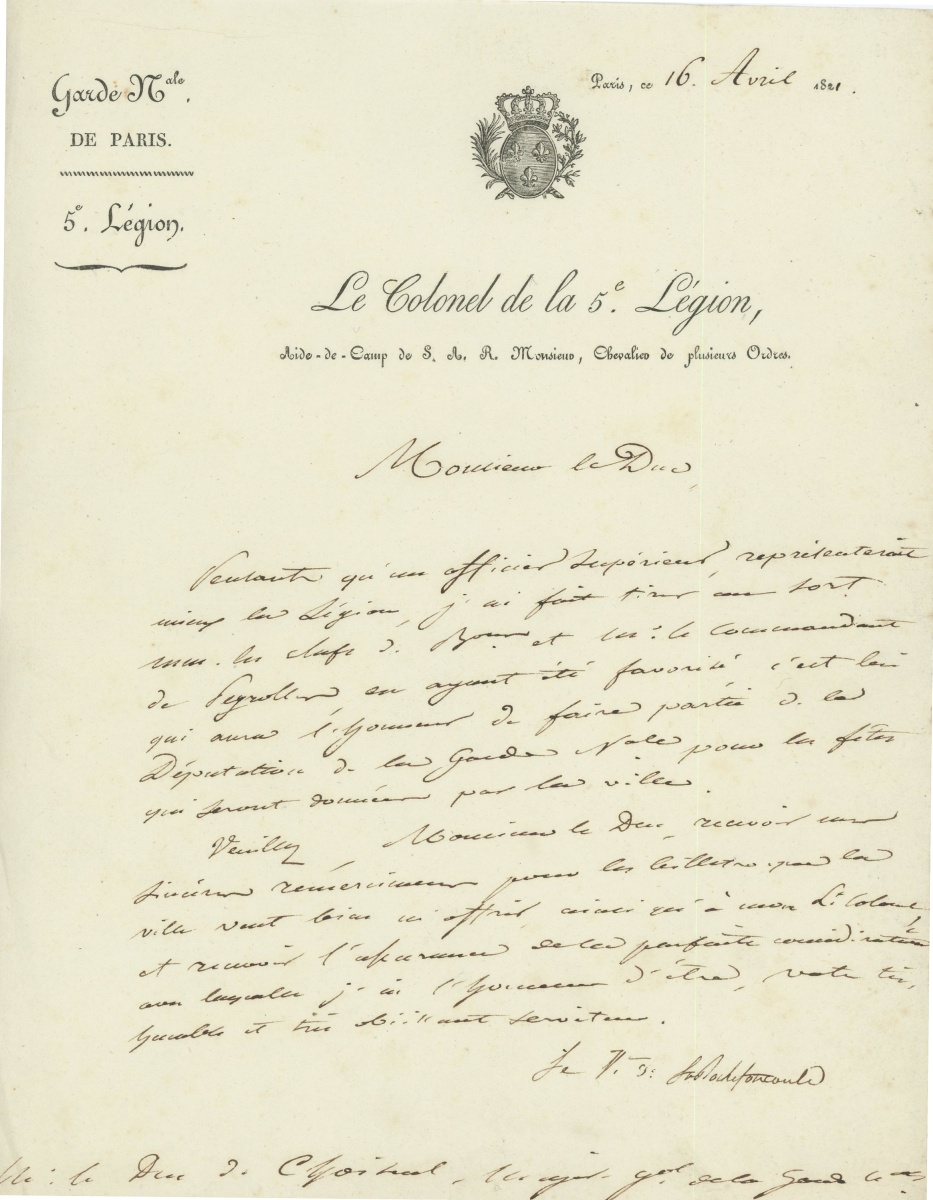 Garde N.ale
DE PARIS.
5e. Légion.
Paris, ce 16. Avril 1821.
Le Colonel de la 5e. Légion,
Aide-de-Camp de S. A. R. Monsieur, Chevalier de plusieurs Ordres.
Monsieur le Duc,
Pensant qu'un officier supérieur, représenterait
mieux la Légion, j'ai fait tirer au sort
mm. les chefs de Bons. et Mr. le Commandant
de Peyrolles en ayant été favorisé c'est lui
qui aura l'honneur de faire partie de la
Députation de la Garde Nale pour les fêtes
qui seront données par la ville.
Veuillez, Monsieur le Duc, recevoir mes
sincères remerciemens pour les billets que la
ville veut bien m'offrir, ainsi qu'à mon Lt Colonel,
et recevoir l'assurance de la parfaite considération
avec laquelle j'ai l'honneur d'être, votre très
humble et très obéissant serviteur.
Le Vte. de LaRochefoucauld
Mr. le Duc de Choiseul, major gal. de la Garde nale.